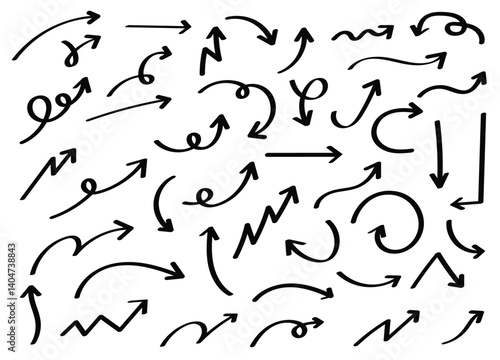 Adobe Stock | #1404738843